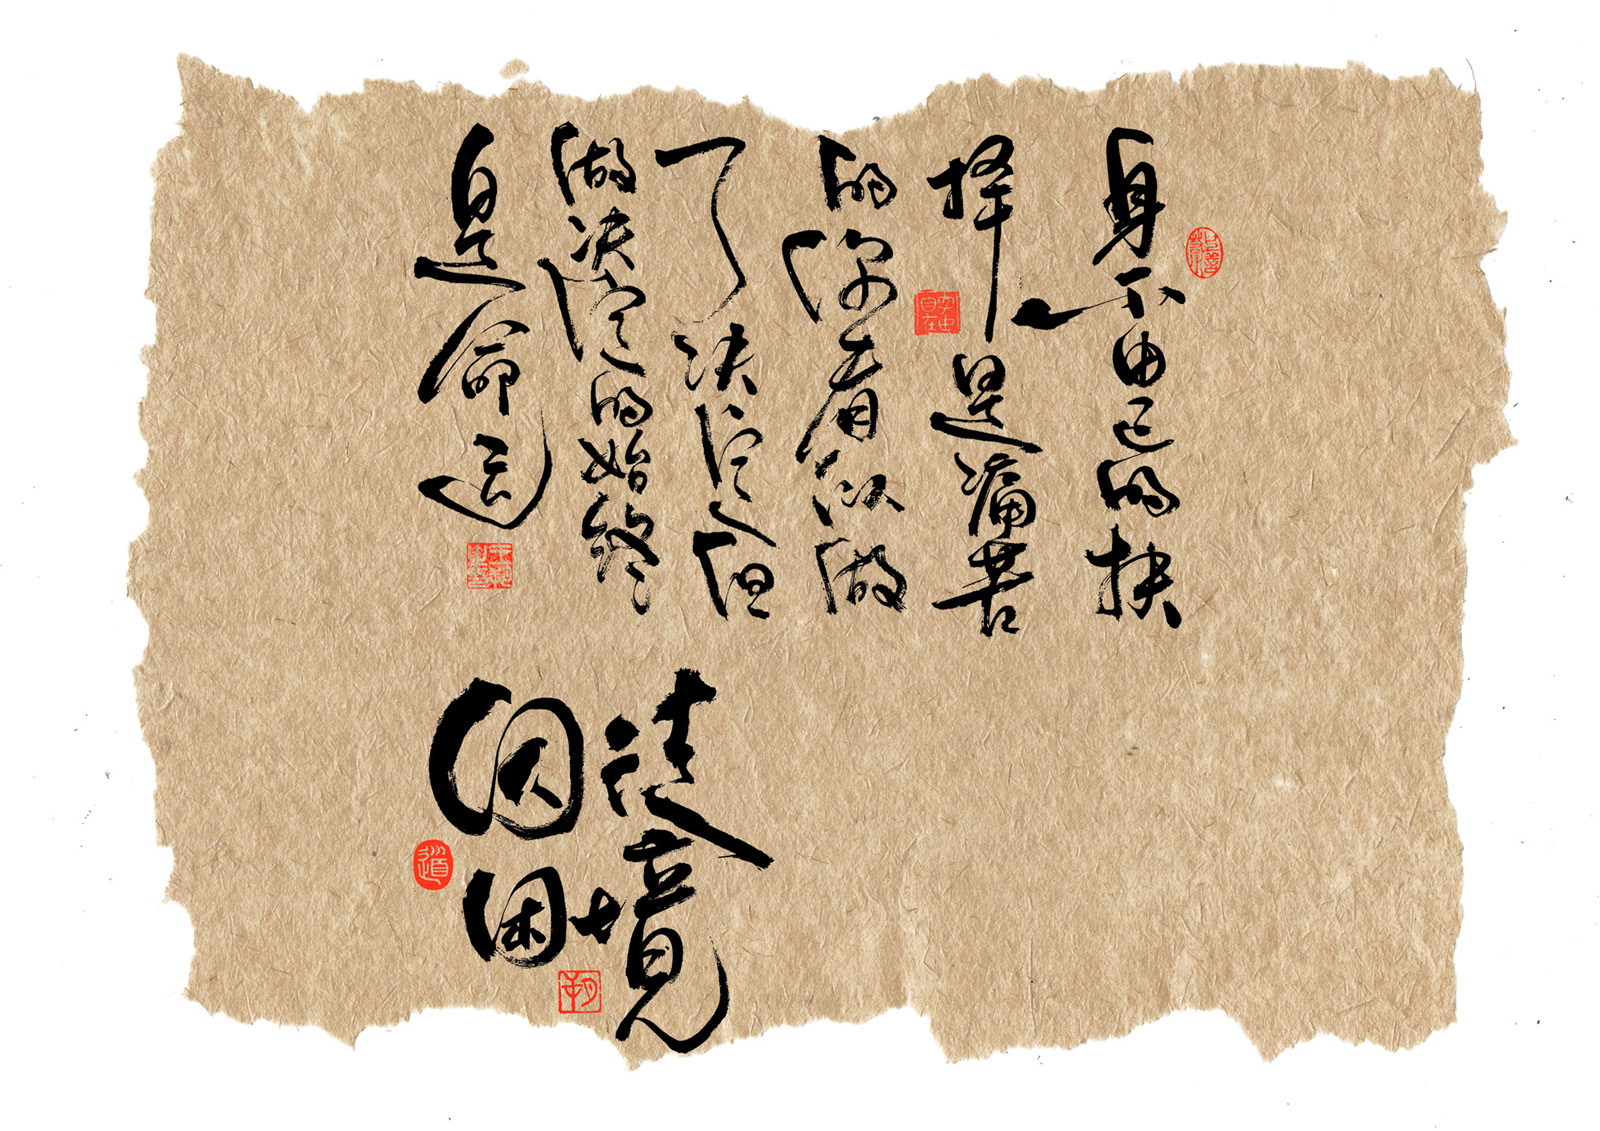 身不由己的抉
择是痛苦
的你看似做
了决定但
做决定的始终
是命运
囚徒
困境
自在
道